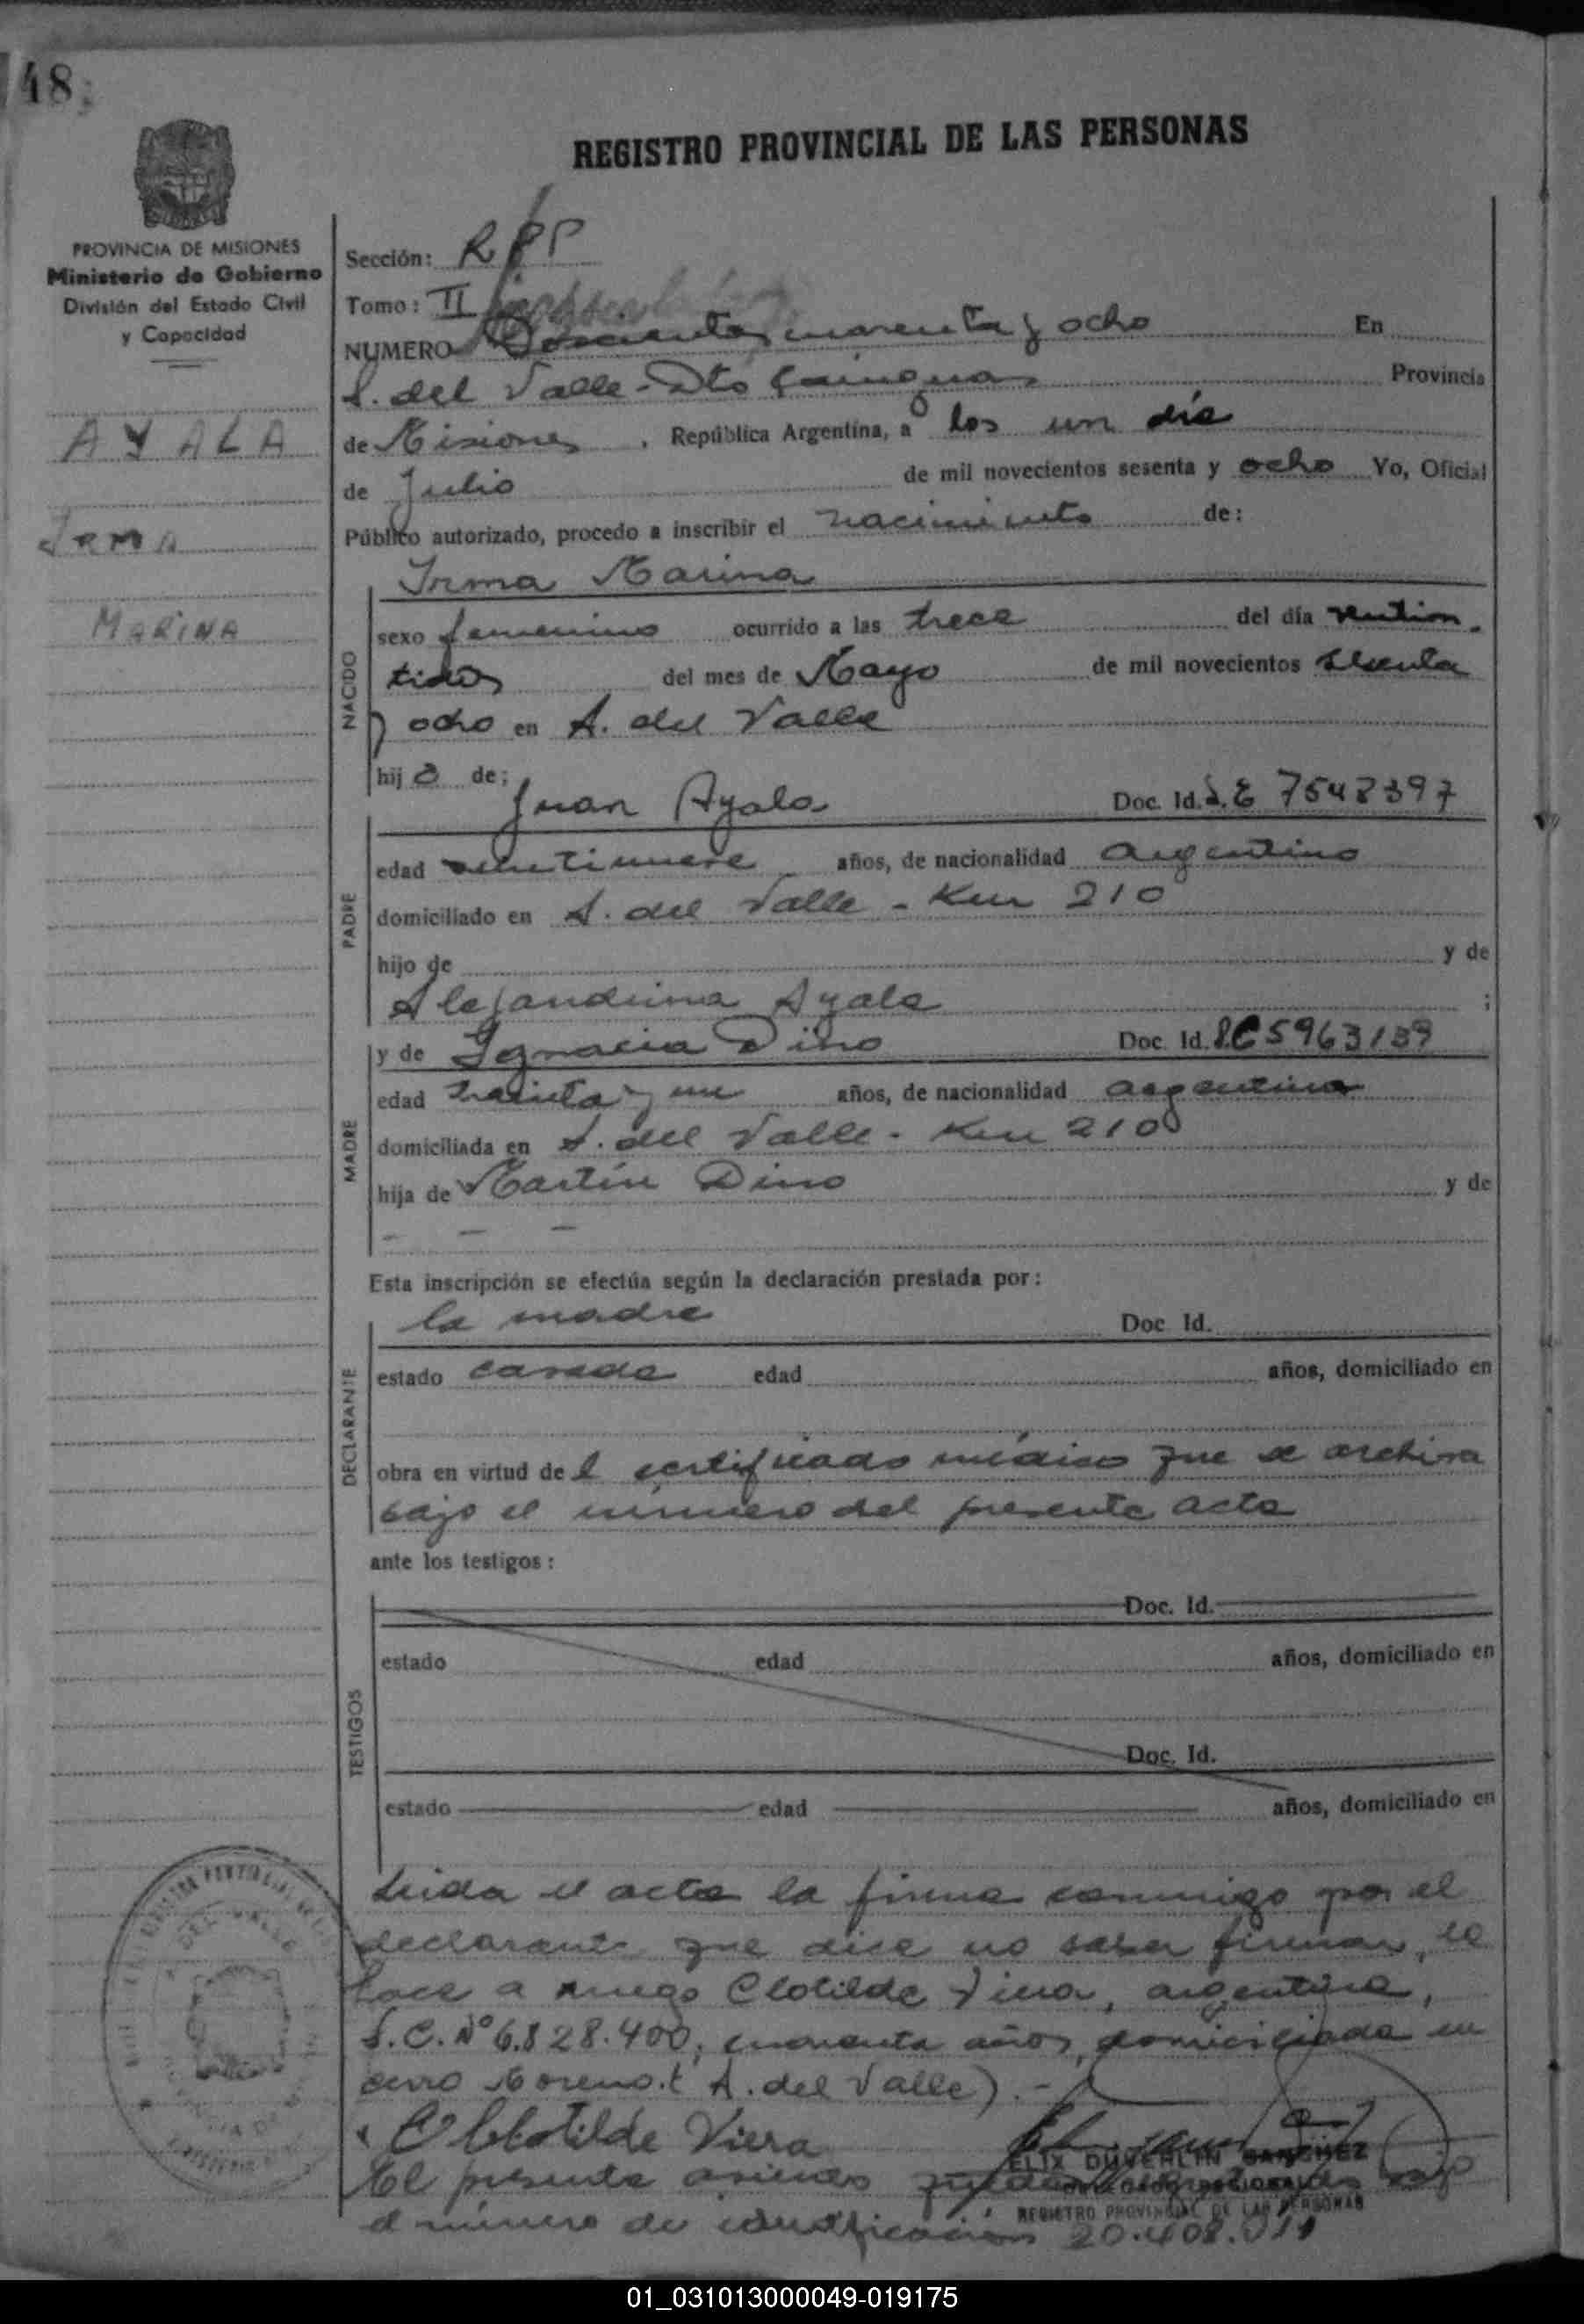 48
REGISTRO PROVINCIAL DE LAS PERSONAS
PROVINCIA DE MISIONES
Ministerio de Gobierno
División del Estado Civil
y Capacidad
AYALA
IRMA
MARINA
Sección: RPP
Tomo: II
NUMERO Doscientos cuarenta y ocho En
A. del Valle - Dto Cainguas Provincia
de Misiones, República Argentina, a los un día
de Julio de mil novecientos sesenta y ocho Yo, Oficial
Público autorizado, procedo a inscribir el nacimiento de:
NACIDO
Irma Marina
sexo femenino ocurrido a las trece del día veinti
tidos del mes de Mayo de mil novecientos sesenta
y ocho en A. del Valle
hija de:
PADRE
Juan Ayala Doc. Id. L.E 7548397
edad veintinueve años, de nacionalidad argentino
domiciliado en A. del Valle - Km 210
hijo de y de
Alejandrina Ayala ;
MADRE
y de Ignacia Dino Doc. Id. LC 5963139
edad treinta y un años, de nacionalidad argentina
domiciliada en A. del Valle - Km 210
hija de Martín Dino y de
- - -
Esta inscripción se efectúa según la declaración prestada por:
DECLARANTE
la madre Doc Id.
estado casada edad años, domiciliado en
obra en virtud del certificado médico que se archiva
bajo el número del presente acta
ante los testigos:
TESTIGOS
Doc. Id.
estado edad años, domiciliado en
Doc. Id.
estado edad años, domiciliado en
Leida el acta la firma conmigo por el
declarante que dice no saber firmar, lo
hace a ruego Clotilde Viera, argentina,
L.C. Nº 6.828.400, cuarenta años, domiciliada en
cerro Moreno (A. del Valle).-
Clotilde Viera
DEL VALLE
ELIX DUVERLIN SANCHEZ
El presente asiento queda bajo
REGISTRO PROVINCIAL DE LAS PERSONAS
el número de identificación 20.408.011
01_031013000049-019175